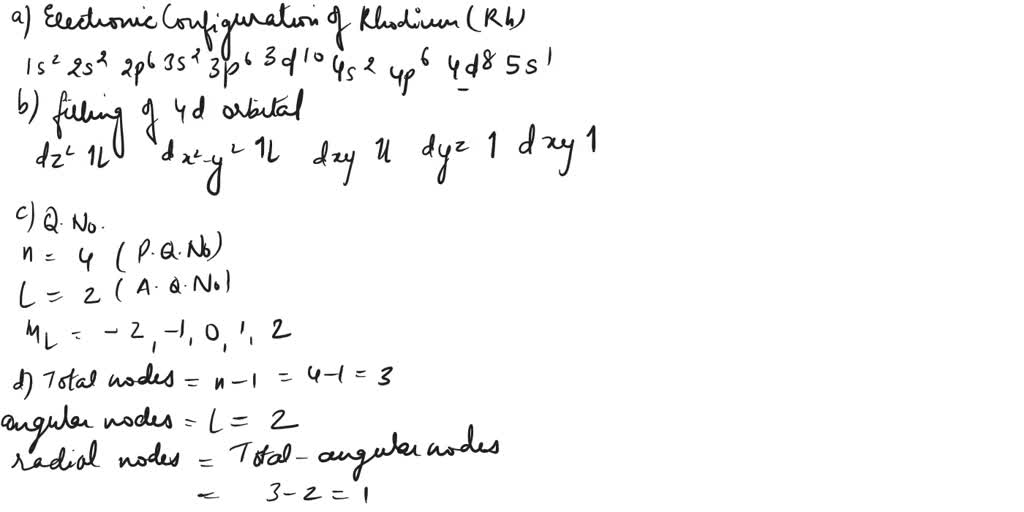 a) Electronic Configuration of Rhodium (Rh)
1s² 2s² 2p⁶ 3s² 3p⁶ 3d¹⁰ 4s² 4p⁶ 4d⁸ 5s¹
b) filling of 4d orbital
dz² 1L dx²-y² 1L dxy 1L dyz 1 dxy 1
c) Q. No.
n = 4 (P.Q.No)
L = 2 (A.Q.No)
ML = -2, -1, 0, 1, 2
d) Total nodes = n-1 = 4-1 = 3
angular nodes = L = 2
radial nodes = Total - angular nodes
= 3-2 = 1